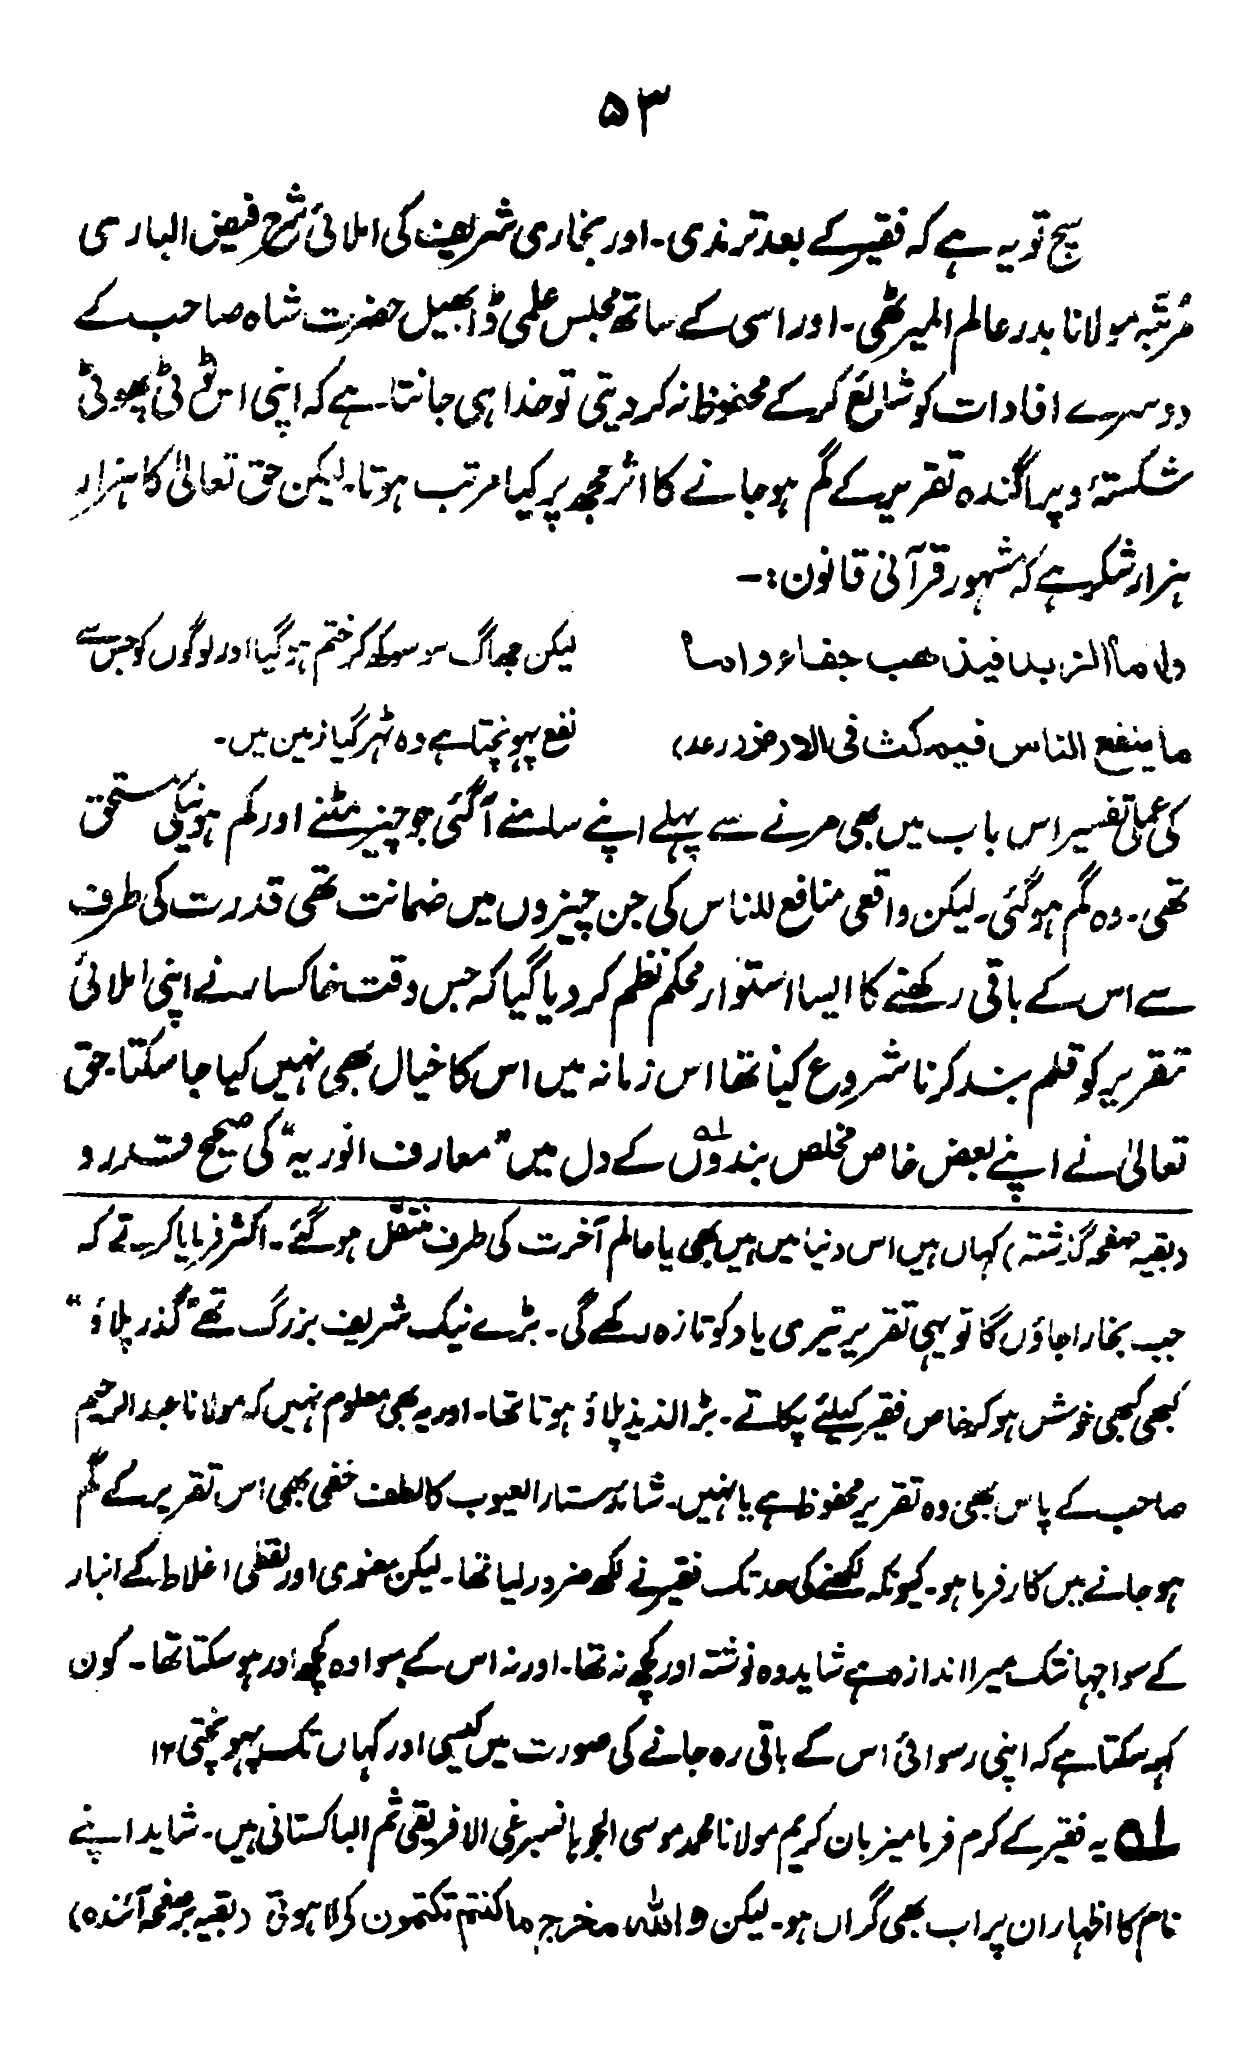 ۵۳
سچ تو یہ ہے کہ فقیر کے بعد ترمذی ۔ اور بخاری شریف کی املائی شرح فیض الباری
مرتبہ مولانا بدر عالم المیرٹھی ۔ اور اسی کے ساتھ مجلس علمی ڈابھیل حضرت شاہ صاحب کے
دوسرے افادات کو شائع کر کے محفوظ نہ کر دیتی تو خدا ہی جانتا ۔ ہے کہ اپنی اس ٹوٹی پھوٹی
شکستۂ و پراگندہ تقریر کے گم ہو جانے کا اثر مجھ پر کیا مرتب ہوتا ۔ لیکن حق تعالیٰ کا ہزار
ہزار شکر ہے کہ مشہور قرآنی قانون :۔
واما الزبد فیذهب جفاء واما لیکن جھاگ سو سوکھ کر ختم ہو گیا اور لوگوں کو جس سے
ما ینفع الناس فیمکث فی الارض (رعد) نفع پہونچتا ہے وہ ٹہر گیا زمین میں ۔
کی عملی تفسیر اس باب میں بھی مرنے سے پہلے اپنے سامنے آگئی جو چیز مٹنے اور گم ہونیکی مستحق
تھی ۔ وہ گم ہو گئی ۔ لیکن واقعی منافع للناس کی جن چیزوں میں ضمانت تھی قدرت کی طرف
سے اس کے باقی رکھنے کا ایسا استوار محکم نظم کر دیا گیا کہ جس وقت خاکسار نے اپنی املائی
تقریر کو قلم بند کرنا شروع کیا تھا اس زمانہ میں اس کا خیال بھی نہیں کیا جا سکتا ۔ حق
تعالیٰ نے اپنے بعض خاص مخلص بندوں ؎۱ کے دل میں ”معارف انوریہ“ کی صحیح قدر و
(بقیہ صفحہ گذشتہ) کہاں ہیں اس دنیا میں ہیں بھی یا عالم آخرت کی طرف منتقل ہو گئے ۔ اکثر فرمایا کرتے کہ
جب بخارا جاؤں گا تو یہی تقریر تیری یاد کو تازہ رکھے گی ۔ بڑے نیک شریف بزرگ تھے ”گذر پلاؤ“
کبھی کبھی خوش ہو کر خاص فقیر کیلئے پکاتے ۔ بڑا لذیذ پلاؤ ہوتا تھا ۔ اور یہ بھی معلوم نہیں کہ مولانا عبد الرحیم
صاحب کے پاس بھی وہ تقریر محفوظ ہے یا نہیں ۔ شاید ستار العیوب کا لطف خفی بھی اس تقریر کے گم
ہو جانے میں کارفرما ہو ۔ کیونکہ لکھنے کی حد تک فقیر نے لکھ ضرور لیا تھا ۔ لیکن معنوی اور لفظی اغلاط کے انبار
کے سوا جہانتک میرا اندازہ ہے شاید وہ نوشتہ اور کچھ نہ تھا ۔ اور نہ اس کے سوا وہ کچھ اور ہو سکتا تھا ۔ کون
کہہ سکتا ہے کہ اپنی رسوائی اس کے باقی رہ جانے کی صورت میں کیسی اور کہاں تک پہونچتی ۱۲
؎۱ یہ فقیر کے کرم فرما میزبان کریم مولانا محمد موسی الجوہانسبرغی الافریقی ثم الباکستانی ہیں ۔ شاید اپنے
نام کا اظہار ان پر اب بھی گراں ہو ۔ لیکن واللہ مخرج ما کنتم تکتمون کی لاہوتی (بقیہ بر صفحہ آئندہ)